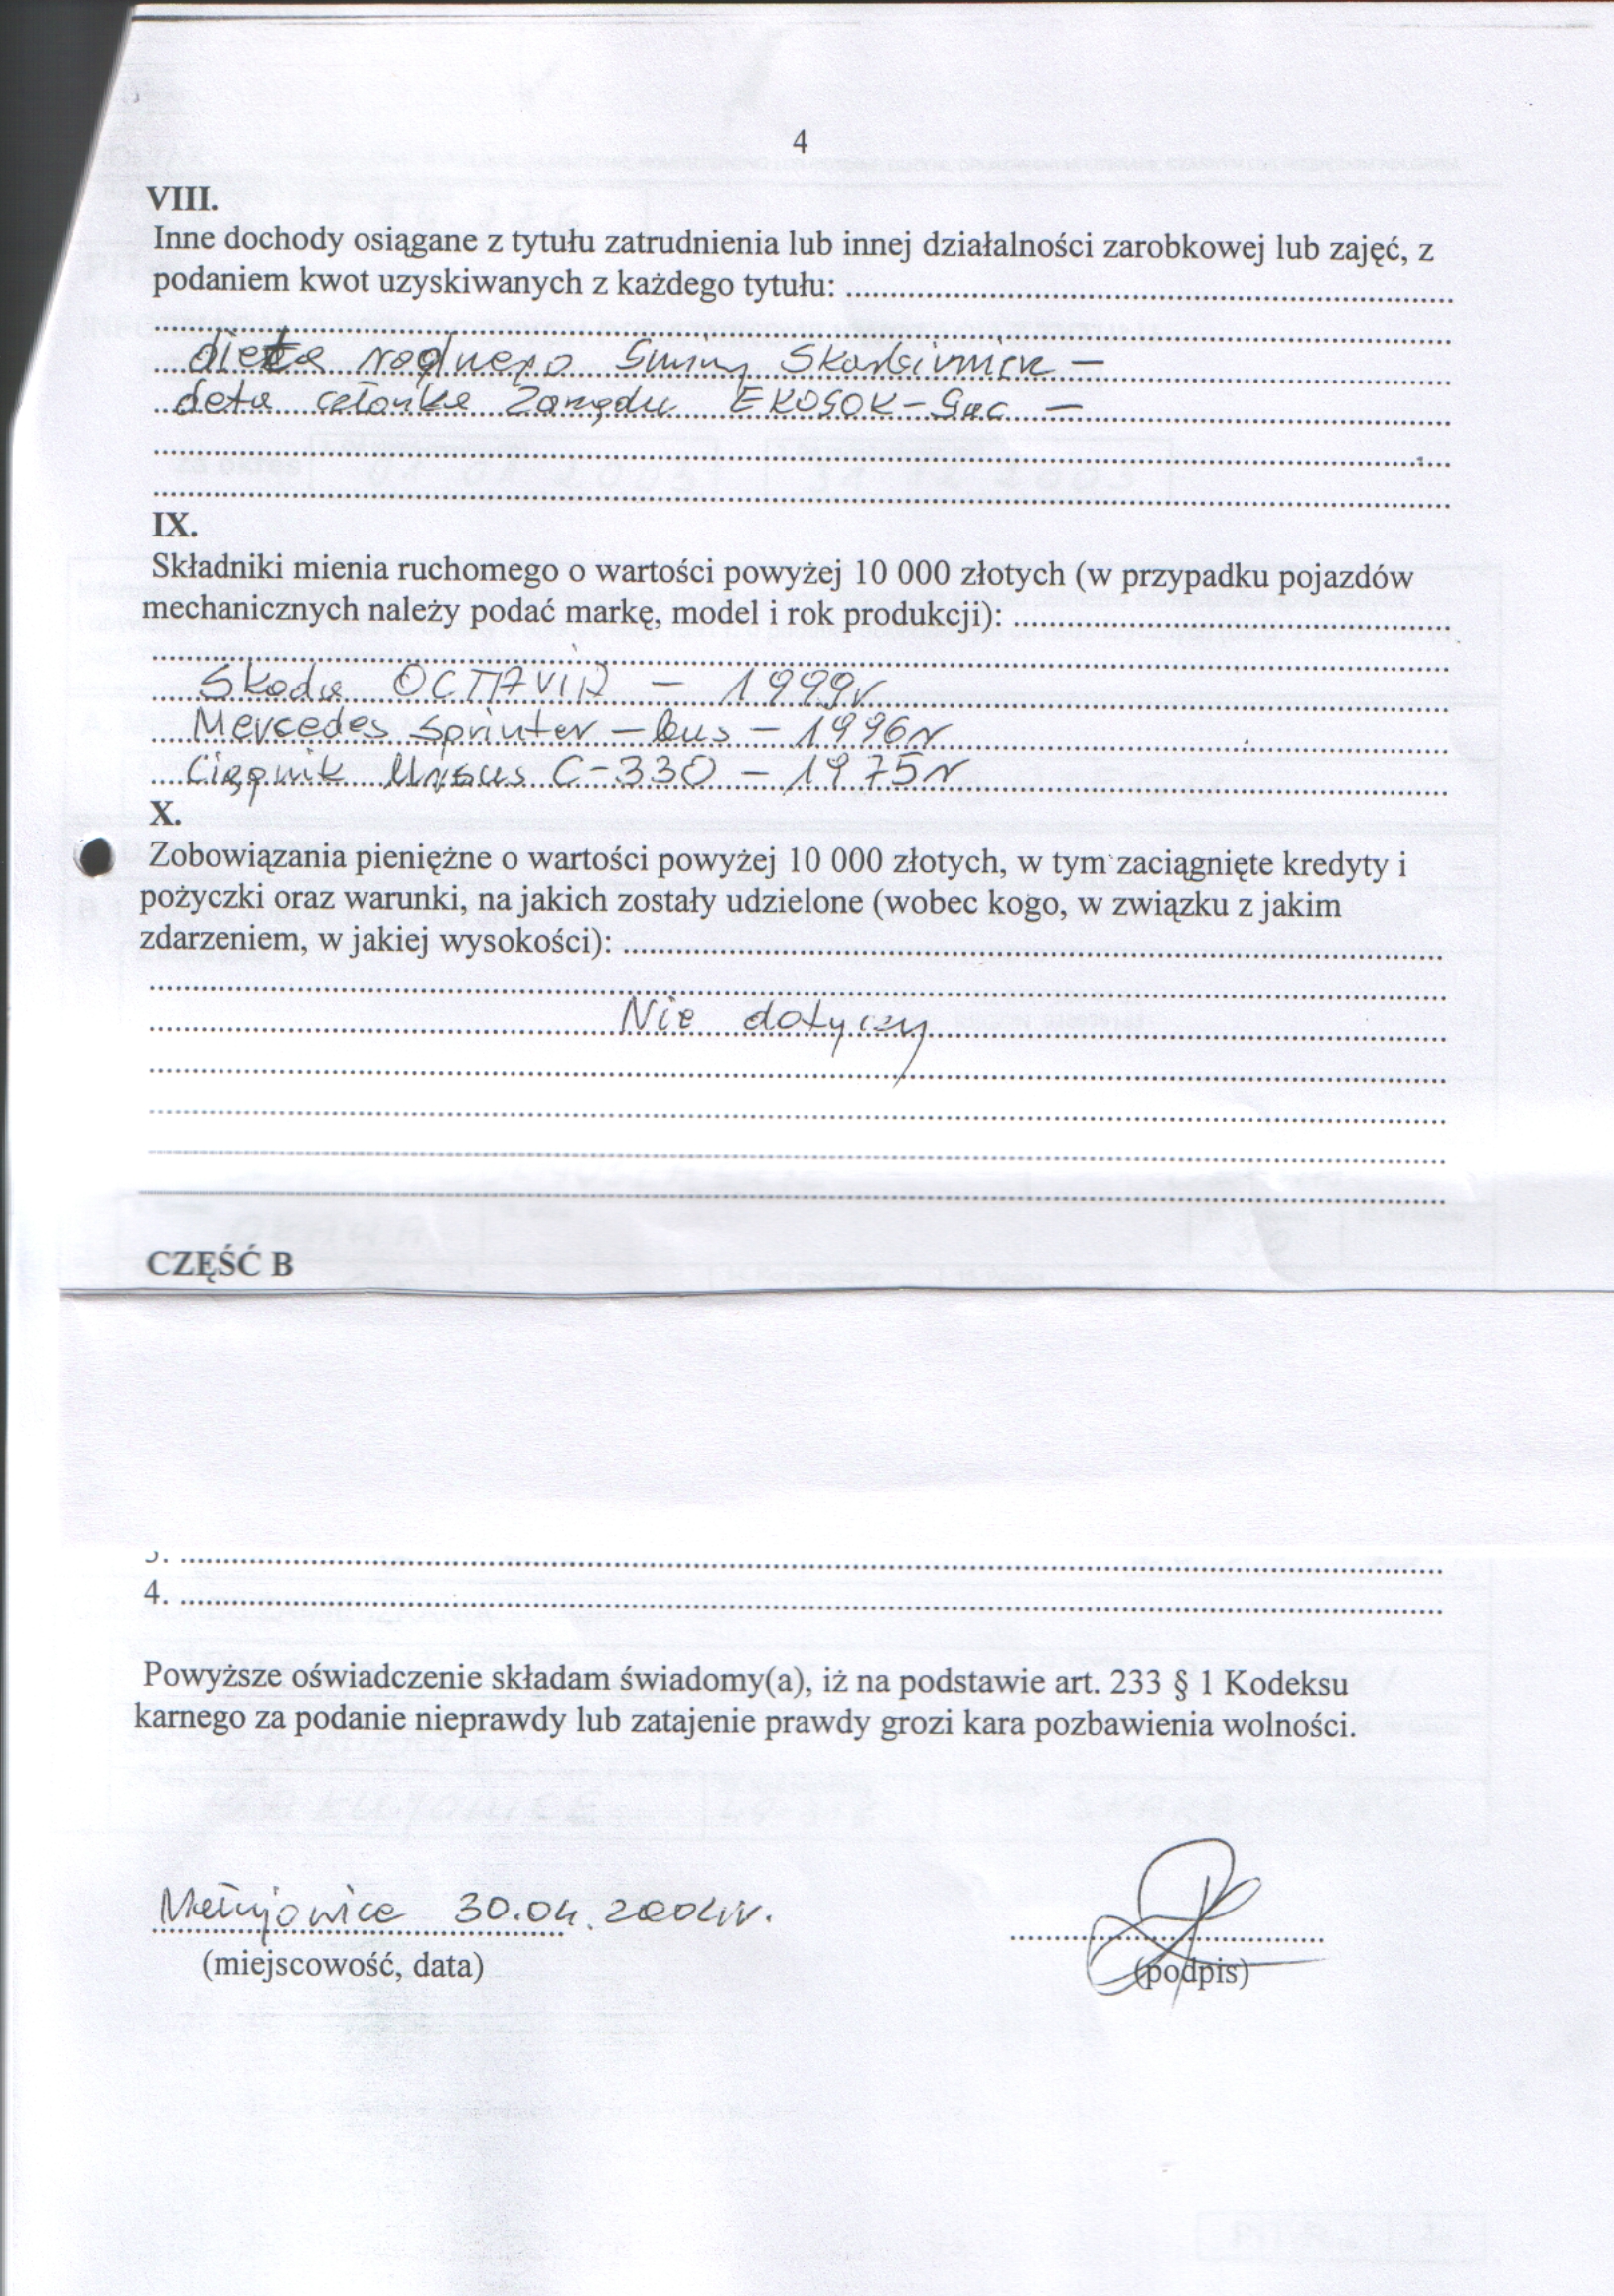 4
VIII.
Inne dochody osiągane z tytułu zatrudnienia lub innej działalności zarobkowej lub zajęć, z
podaniem kwot uzyskiwanych z każdego tytułu:
dieta radnego Gminy Skarbimierz —
deta członka Zarządu EKOGOK-Gać —
IX.
Składniki mienia ruchomego o wartości powyżej 10 000 złotych (w przypadku pojazdów
mechanicznych należy podać markę, model i rok produkcji):
Skoda OCTAVIA — 1999r
Mercedes sprinter — bus — 1996r
Ciągnik Ursus C-330 — 1975r
X.
Zobowiązania pieniężne o wartości powyżej 10 000 złotych, w tym zaciągnięte kredyty i
pożyczki oraz warunki, na jakich zostały udzielone (wobec kogo, w związku z jakim
zdarzeniem, w jakiej wysokości):
Nie dotyczy
CZĘŚĆ B
3.
4.
Powyższe oświadczenie składam świadomy(a), iż na podstawie art. 233 § 1 Kodeksu
karnego za podanie nieprawdy lub zatajenie prawdy grozi kara pozbawienia wolności.
Małujowice 30.04.2004r.
(miejscowość, data)
(podpis)